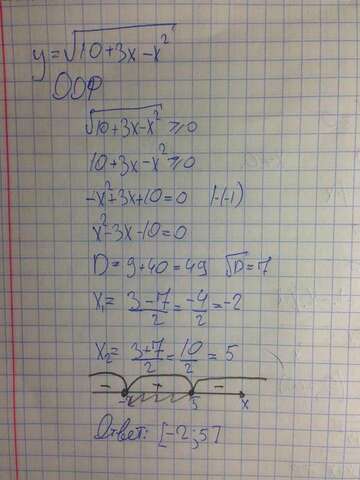 y = √(10+3x-x²)
ООФ
√(10+3x-x²) ≥ 0
10+3x-x² ≥ 0
-x²+3x+10=0 |·(-1)
x²-3x-10=0
D = 9+40=49 √D=7
x₁ = (3-7)/2 = -4/2 = -2
x₂ = (3+7)/2 = 10/2 = 5
- + -
-2 5 x
Ответ: [-2;5]